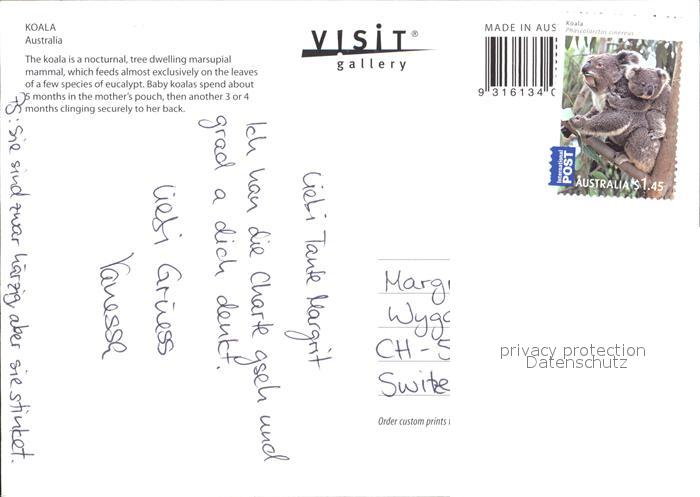 KOALA
Australia
The koala is a nocturnal, tree dwelling marsupial
mammal, which feeds almost exclusively on the leaves
of a few species of eucalypt. Baby koalas spend about
5 months in the mother's pouch, then another 3 or 4
months clinging securely to her back.
VISIT®
gallery
MADE IN AUS
9 316134 0
Koala
Phascolarctos cinereus
International
POST
AUSTRALIA $1.45
Liebi Tante Margrit
Ich han die Charte gseh und
grad a dich denkt.
Liebi Grüess
Vanessa
PS: Sie sind zwar härzig, aber sie stinket.
Margr
Wygo
CH-5
Switze
Order custom prints
privacy protection
Datenschutz